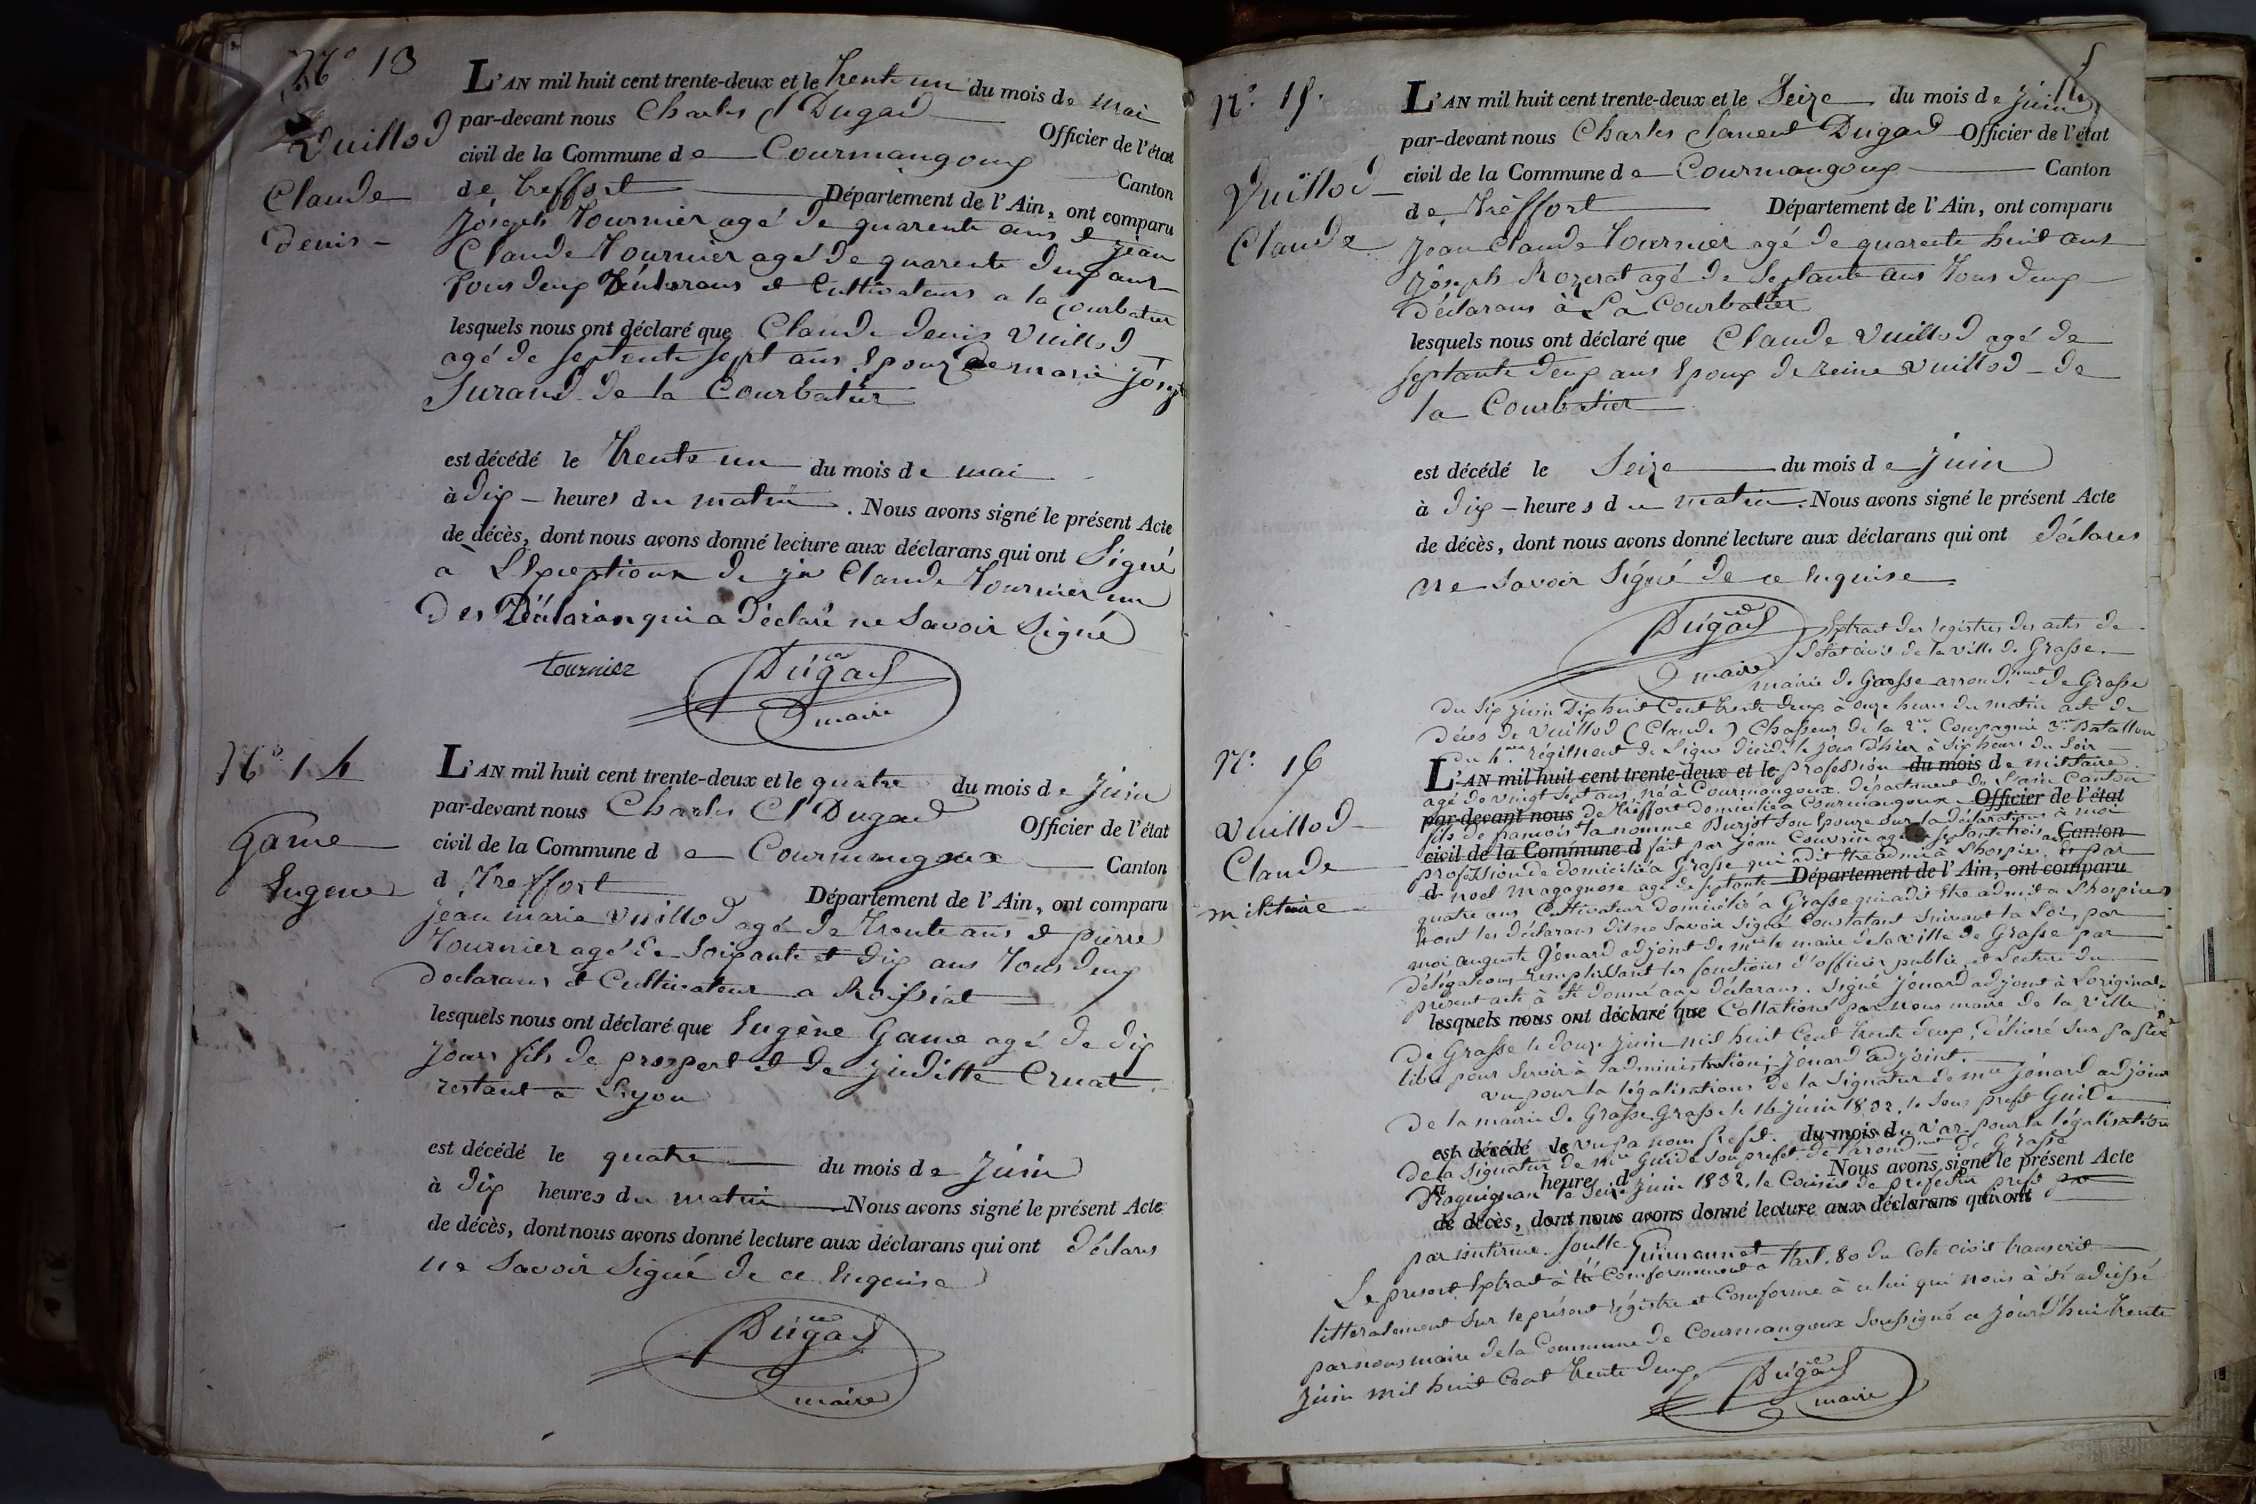 N° 13
Vuillod
Claude
denis
L'AN mil huit cent trente-deux et le trente un du mois de mai
par-devant nous Charles Ct Dugad Officier de l'état
civil de la Commune de Courmangoux Canton
de treffort Département de l'Ain, ont comparu
joseph tournier agé de quarente ans et jean
Claude tournier agé de quarente deux ans
tous deux déclarans et Cultivateurs a la Courbatier
lesquels nous ont déclaré que Claude denis vuillod
agé de septente sept ans Epoux de marie joseph
Surand de la Courbatier
est décédé le trente un du mois de mai
à dix heures du matin. Nous avons signé le présent Acte
de décès, dont nous avons donné lecture aux déclarans qui ont Signé
a L'Exceptions de jn Claude tournier un
des Déclaran qui a déclaré ne Savoir Signé
tournier Dugad
maire
N° 14
Game
Eugene
L'AN mil huit cent trente-deux et le quatre du mois de juin
par-devant nous Charles Ct Dugad Officier de l'état
civil de la Commune de Courmangoux Canton
d treffort Département de l'Ain, ont comparu
jean marie vuillod agé de trente ans et pierre
tournier agé de soixante et dix ans tous deux
declarans et Cultivateur a Roissiat
lesquels nous ont déclaré que Eugène Game agé de dix
jours fils de prospert et de juditte Cruat
restant a Lyon
est décédé le quatre du mois de juin
à dix heures du matin Nous avons signé le présent Acte
de décès, dont nous avons donné lecture aux déclarans qui ont déclares
ne Savoir Signé de ce Enquise
Dugad
maire
N° 15.
Vuillod
Claude
L'AN mil huit cent trente-deux et le Seize du mois de juin
par-devant nous Charles Clement Dugad Officier de l'état
civil de la Commune de Courmangoux Canton
de treffort Département de l'Ain, ont comparu
jean Claude tournier agé de quarente huit ans
joseph Rozerat agé de Septante ans tous deux
déclarans à La Courbatier
lesquels nous ont déclaré que Claude vuillod agé de
septante deux ans Epoux de reine vuillod de
la Courbatier
est décédé le Seize du mois de juin
à dix heures du matin. Nous avons signé le présent Acte
de décès, dont nous avons donné lecture aux déclarans qui ont déclares
ne Savoir Signé de ce Enquise
Dugad
maire
N° 16
Vuillod
Claude
militaire
Extrait des registres des actes de
l'état civil de la ville de Grasse.
mairie de Grasse arrondment de Grasse
du six juin dix huit Cent trente deux à onze heures du matin acte de
déces de vuillod (Claude) Chasseur de la 2me Compagnie 3me Batallion
du régiment de Ligne décédé le jour d'hier à six heures du Soir
L'AN mil huit cent trente-deux et le profession du mois de militaire.
agé de vingt sept ans, né à Courmangoux. département de l'ain Canton
par-devant nous de treffort domicilié a Courmangoux Officier de l'état
fils de francois et la nommé Purjot son Epouze sur la déclaration à moi
civil de la Commune d fait par jean Couvrin agé de septante trois ans Canton
profession de domicilié a Grasse qui a dit être admi à l'hospice, et par
d noel Magagnose age de septante Département de l'Ain, ont comparu
quatre ans Cultivateur domicilié a Grasse qui a dit être admit a l'hospice
dont les déclarans dit ne savoir signé Constatant Suivant la Loi, par
moi auguste jénard adjoint de mr le maire de la ville de Grasse par
délégations remplissant les fonctions d'officier public, et Lecture du
présent acte à été donné aux déclarans. Signé jénard adjoint à l'original.
lesquels nous ont déclaré que Collationé par nous maire de la ville
de Grasse le douze juin mil huit Cent trente deux, délivré Sur papier
libre pour Servir à l'administration; jénard adjoint.
vu pour la légalisations de la Signatur de mr jénard adjoint
de la mairie de Grasse. Grasse le 14 juin 1832, le Sous prefet Guide
est décédé le vu pa nous prefet. du mois d du var pour la légalisation
de la Signatur de mr Guide sou prefet de l'arondment de Grasse
à heure d Nous avons signé le présent Acte
Draguignan le Seize juin 1832, le Conseiller de prefectur prefet
de décès, dont nous avons donné lecture aux déclarans qui ont
par interime
Le present Extrait à été Conformement a l'art. 80 du Code civil transcrit
litteralement Sur le présent régistre et Conforme à celui qui nous à été adressé
par nous maire de la Commune de Courmangoux Soussigné a jourd'hui trente
juin mil huit Cent trente deux. Dugad
maire